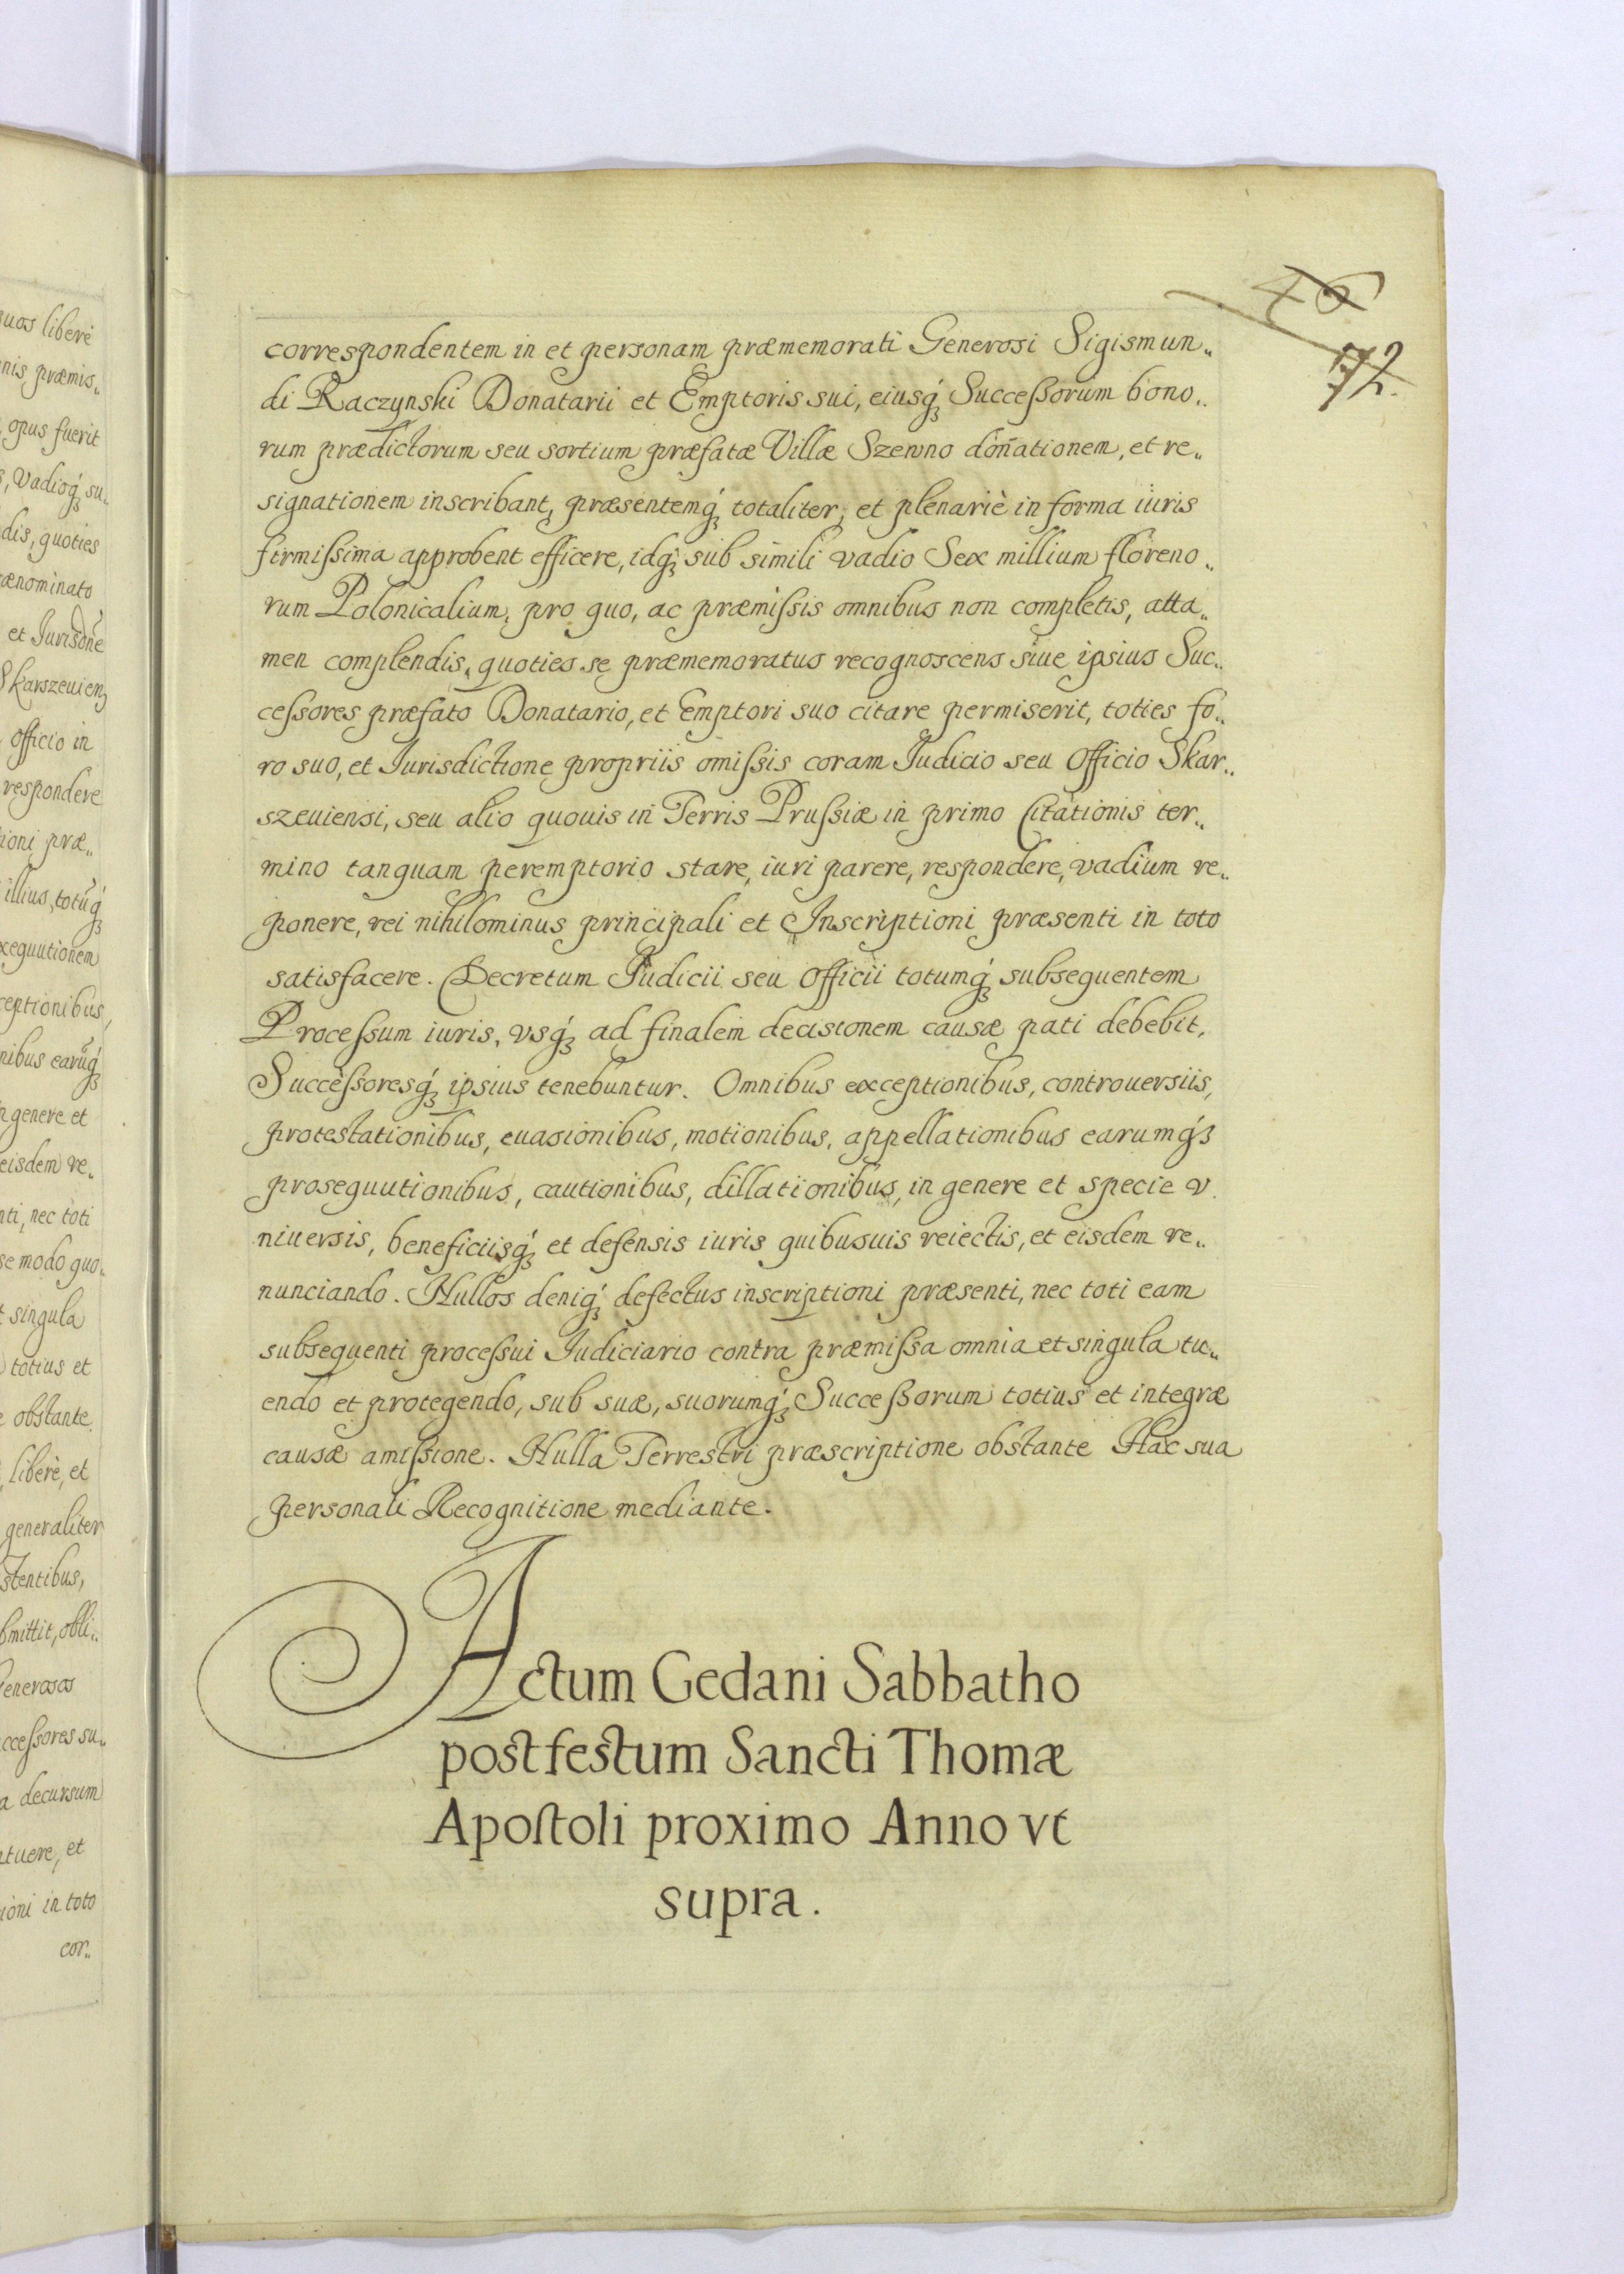 uos liberè
nis præmis„
opus fuerit
s, Vadioq́ꝫ su„
dis, quoties
ænominato
et Jurisdōne
Skarszeuienꝫ
officio in
respondere
ioni præ„
illius, totūq́ꝫ
xequutionem
ceptionibus,
nibus earūq́ꝫ
n genere et
eisdem re„
nti, nec toti
se modo quo„
t singula
totius et
e obstante
, liberè, et
generaliter
stentibus,
bmittit, obli„
Generosos
ccessores su„
a decursum
atuere, et
ioni in toto
cor„
46
72.
correspondentem in et personam præmemorati Generosi Sigismun„
di Raczynski Donatarii et Emptoris sui, eiusq́ꝫ Successorum bono„
rum prædictorum seu sortium præfatæ Villæ Szewno dōnationem, et re„
signationem inscribant, præsentemq́ꝫ totaliter, et plenariè in forma iuris
firmissima approbent efficere, idq́ꝫ sub simili vadio Sex millium floreno„
rum Polonicalium, pro quo, ac præmissis omnibus non completis, atta„
men complendis, quoties se præmemoratus recognoscens siue ipsius Suc„
cessores præfato Donatario, et Emptori suo citare permiserit, toties fo„
ro suo, et Jurisdictione propriis omissis coram Judicio seu Officio Skar„
szeuiensi, seu alio quouis in Terris Prussiæ in primo Citationis ter„
mino tanquam peremptorio stare, iuri parere, respondere, vadium re„
ponere, rei nihilominus principali et Inscriptioni præsenti in toto
satisfacere. Decretum Judicii seu Officii totumq́ꝫ subsequentem
Processum iuris, vsq́ꝫ ad finalem decisionem causæ pati debebit,
Successoresq́ꝫ ipsius tenebuntur. Omnibus exceptionibus, controuersiis,
protestationibus, euasionibus, motionibus, appellationibus earumq́ꝫ
prosequutionibus, cautionibus, dillationibus, in genere et specie v„
niuersis, beneficiisq́ꝫ et defensis iuris quibusuis reiectis, et eisdem re„
nunciando. Nullos deniq́ꝫ defectus inscriptioni præsenti, nec toti eam
subsequenti processui Judiciario contra præmissa omnia et singula tu„
endo et protegendo, sub suæ, suorumq́ꝫ Successorum totius et integræ
causæ amissione. Nulla Terrestri præscriptione obstante Hac sua
personali Recognitione mediante.
Actum Gedani Sabbatho
post festum Sancti Thomæ
Apostoli proximo Anno vt
supra.